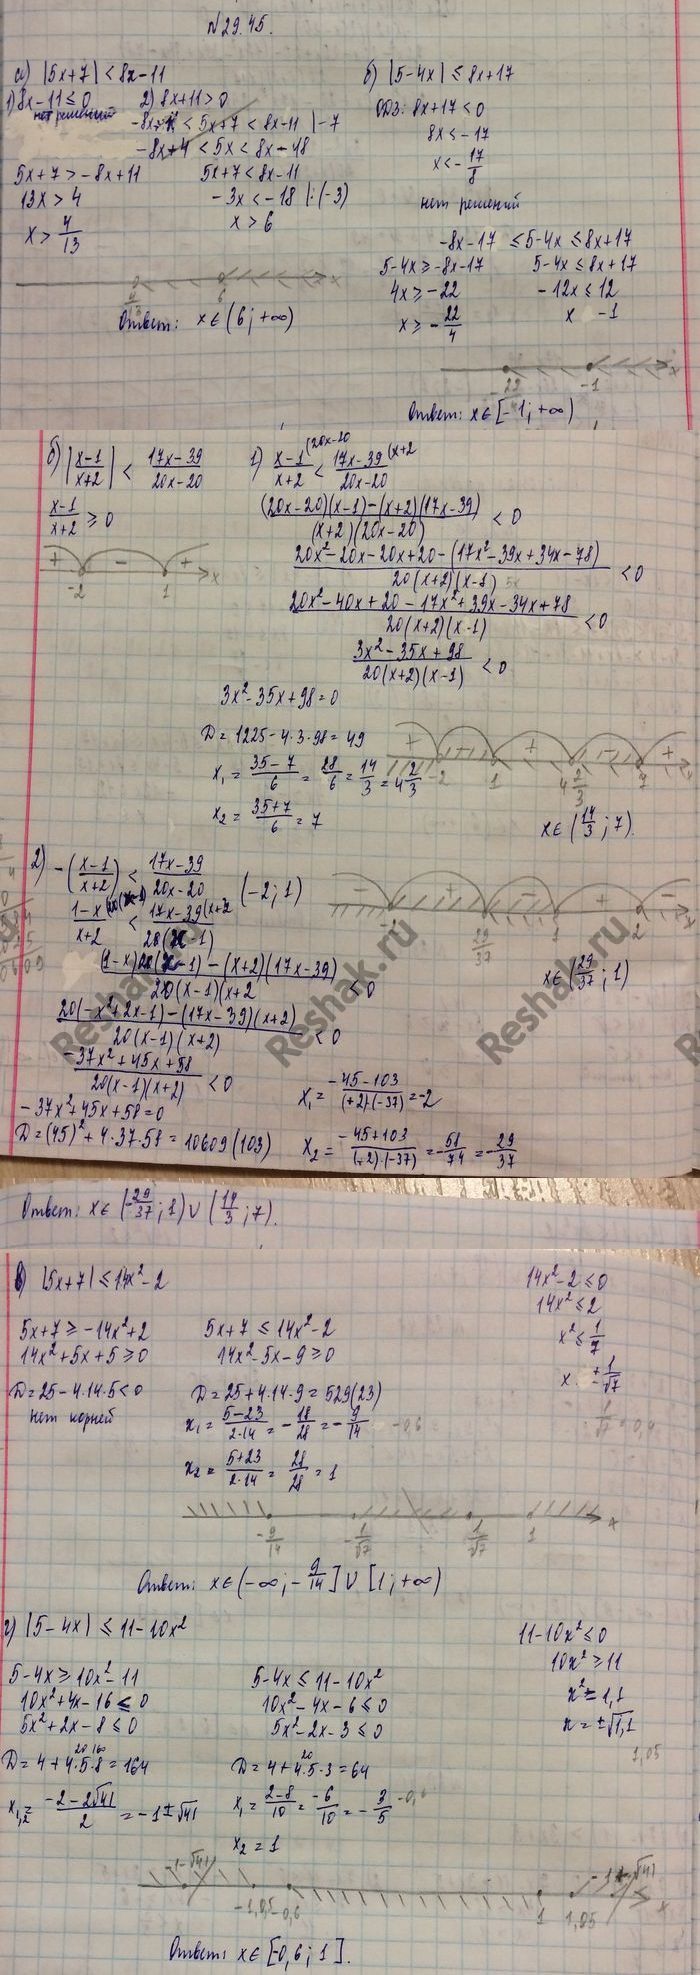 №29.45.
а) |5x+7| < 8x-11
1) 8x-11≤0
нет решений
2) 8x+11>0
< 5x+7 < 8x-11 |-7
-8x+4 < 5x < 8x-18
5x+7 > -8x+11
13x > 4
x > 4/13
5x+7 < 8x-11
-3x < -18 |:(-3)
x > 6
6 x
Ответ: x∈(6;+∞)
б) |5-4x| ≤ 8x+17
ОДЗ: 8x+17<0
8x<-17
x<-17/8
нет решений
-8x-17 ≤ 5-4x ≤ 8x+17
5-4x ≥ -8x-17
4x ≥ -22
x ≥ -22/4
5-4x ≤ 8x+17
-12x ≤ 12
x -1
-1 x
Ответ: x∈[-1;+∞)
б) |(x-1)/(x+2)| < (17x-39)/(20x-20)
(x-1)/(x+2) ≥ 0
+ - +
-2 1 x
1) (x-1)/(x+2) (20x-20 < (17x-39)/(20x-20) (x+2
((20x-20)(x-1)-(x+2)(17x-39))/((x+2)(20x-20)) < 0
(20x²-20x-20x+20-(17x²-39x+34x-78))/(20(x+2)(x-1)) < 0
(20x²-40x+20-17x²+39x-34x+78)/(20(x+2)(x-1)) < 0
(3x²-35x+98)/(20(x+2)(x-1)) < 0
3x²-35x+98=0
D=1225-4·3·98=49
x₁=(35-7)/6=28/6=14/3=4 2/3
x₂=(35+7)/6=7
+ - + - +
-2 1 4 2/3 7 x
x∈(14/3;7)
2) -((x-1)/(x+2)) < (17x-39)/(20x-20) (-2;1)
(1-x)/(x+2) < (17x-39)/(20(x-1)) (x+2
((1-x)20(x-1)-(x+2)(17x-39))/(20(x-1)(x+2) < 0
(20(-x²+2x-1)-(17x-39)(x+2))/(20(x-1)(x+2)) < 0
(-37x²+45x+58)/(20(x-1)(x+2)) < 0
-37x²+45x+58=0
D=(45)²+4·37·58=10609(103)
- + - + -
29/37 1 2 x
x∈(29/37;1)
x₁=(-45-103)/((+2)·(-37))=-2
x₂=(-45+103)/((+2)·(-37))=-58/74=-29/37
Reshak.ru
Reshak.ru
Reshak.ru
Ответ: x∈(-29/37;1)∪(14/3;7).
в) |5x+7| ≤ 14x²-2
5x+7 ≥ -14x²+2
14x²+5x+5 ≥ 0
D=25-4·14·5<0
нет корней
5x+7 ≤ 14x²-2
14x²-5x-9 ≥ 0
D=25+4·14·9=529(23)
x₁=(5-23)/(2·14)=-18/28=-9/14 -0,6
x₂=(5+23)/(2·14)=28/28=1
14x²-2≤0
14x²≤2
x²≤1/7
x ±1/√7
-9/14 -1/√7 1/√7 1 x
Ответ: x∈(-∞;-9/14]∪[1;+∞)
г) |5-4x| ≤ 11-10x²
5-4x ≥ 10x²-11
10x²+4x-16 ≤ 0
5x²+2x-8 ≤ 0
D=4+4·5·8=164
x₁,₂=(-2-2√41)/2=-1±√41
5-4x ≤ 11-10x²
10x²-4x-6 ≤ 0
5x²-2x-3 ≤ 0
D=4+4·5·3=64
x₁=(2-8)/10=-6/10=-3/5
x₂=1
11-10x²≤0
10x²≥11
x²=1,1
x=±√1,1
1,05
-1-√41 -1,05 -0,6 1 1,05 -1+√41 x
Ответ: x∈[-0,6;1].